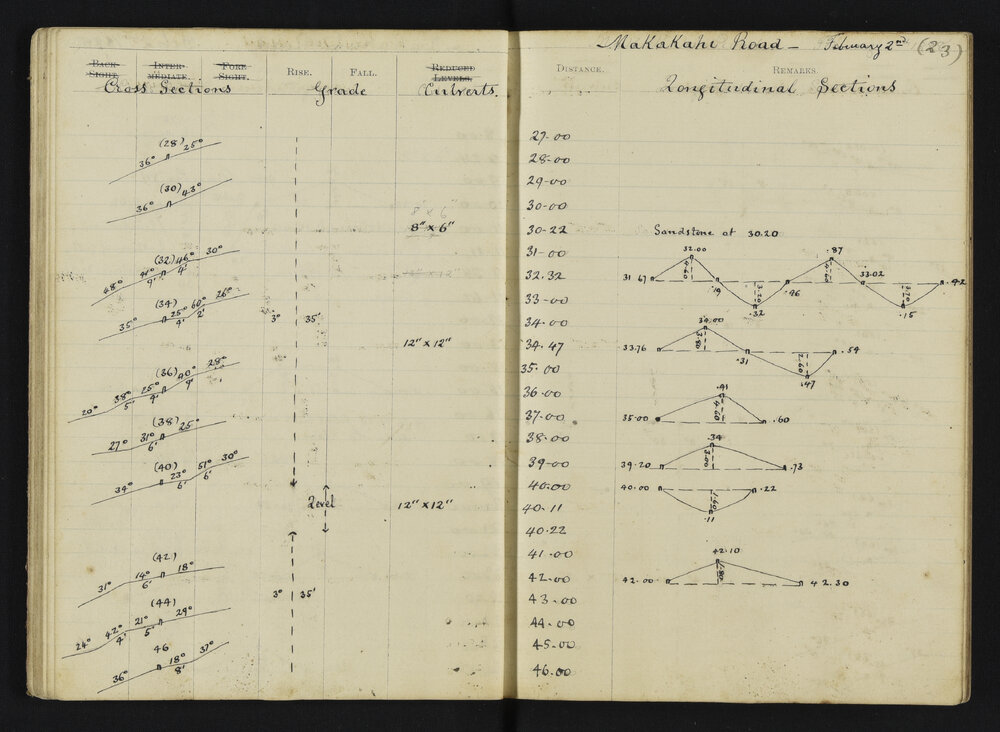 Makakahi Road — February 2nd (23)
BACK SIGHT. INTER-MEDIATE. FORE SIGHT. RISE. FALL. REDUCED LEVELS. DISTANCE. REMARKS.
Cross Sections Grade Culverts. Longitudinal Sections
27.00
(28)
36° 25°
28.00
29.00
(30)
36° 43°
30.00
8" x 6" 30.22 Sandstone at 30.20
31.00
(32) 46° 30°
68° 4'
32.32
32.00 .87
31.67 .19 .46 33.02 .42
.32 .15
33.00
(34) 60° 26°
35° 25° 4' 2'
3° 35'
34.00
12" x 12" 34.47
34.00
33.76 .31 .54
.47
35.00
(36) 28°
20° 38° 25°
5' 4' 9'
36.00
.41
35.00 .60
37.00
(38)
27° 31° 25°
6'
38.00
.34
39.20 .73
39.00
(40)
34° 23° 51° 30°
6' 6'
40.00
40.00 .22
1.60
.11
Level 12" x 12" 40.11
40.22
41.00
(42)
31° 14° 18°
6'
42.00
42.10
42.00 42.30
3° 35'
43.00
(44)
24° 42° 21° 29°
4' 5'
44.00
45.00
46
36° 18° 37°
8'
46.00